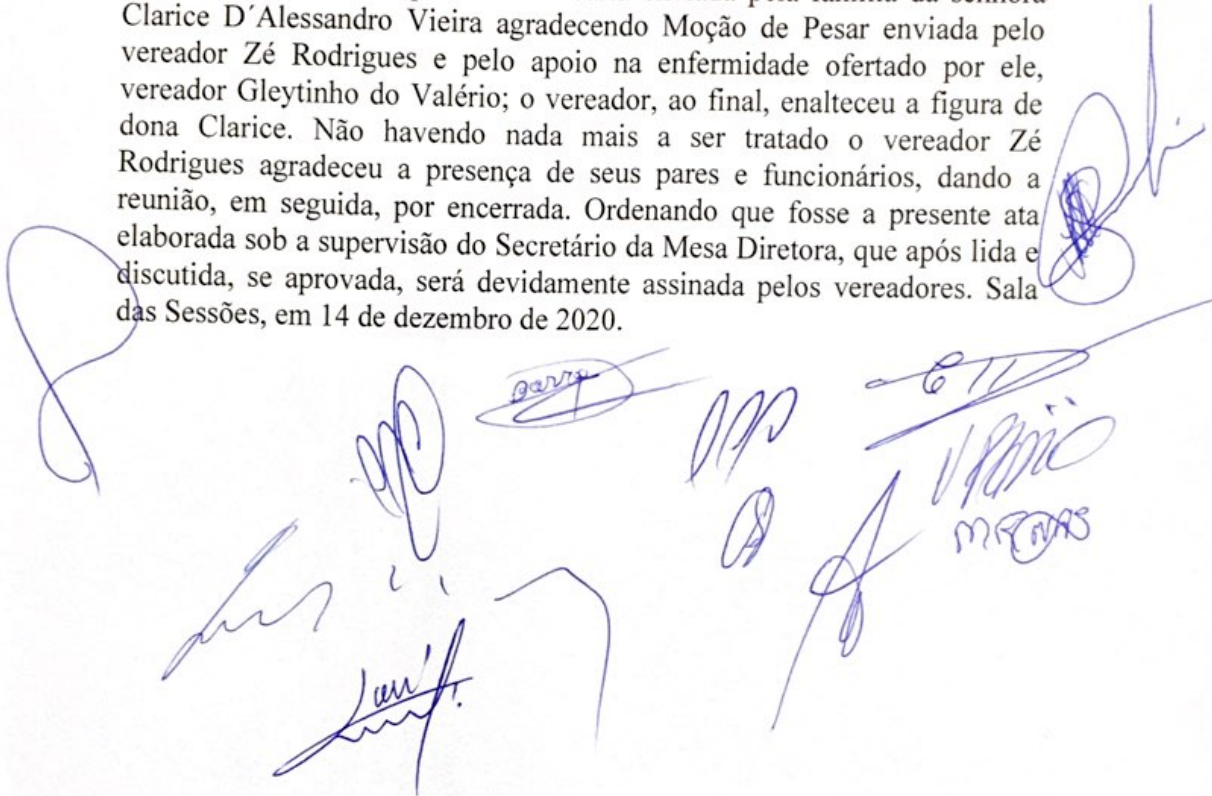 Clarice D´Alessandro Vieira agradecendo Moção de Pesar enviada pelo
vereador Zé Rodrigues e pelo apoio na enfermidade ofertado por ele,
vereador Gleytinho do Valério; o vereador, ao final, enalteceu a figura de
dona Clarice. Não havendo nada mais a ser tratado o vereador Zé
Rodrigues agradeceu a presença de seus pares e funcionários, dando a
reunião, em seguida, por encerrada. Ordenando que fosse a presente ata
elaborada sob a supervisão do Secretário da Mesa Diretora, que após lida e
discutida, se aprovada, será devidamente assinada pelos vereadores. Sala
das Sessões, em 14 de dezembro de 2020.